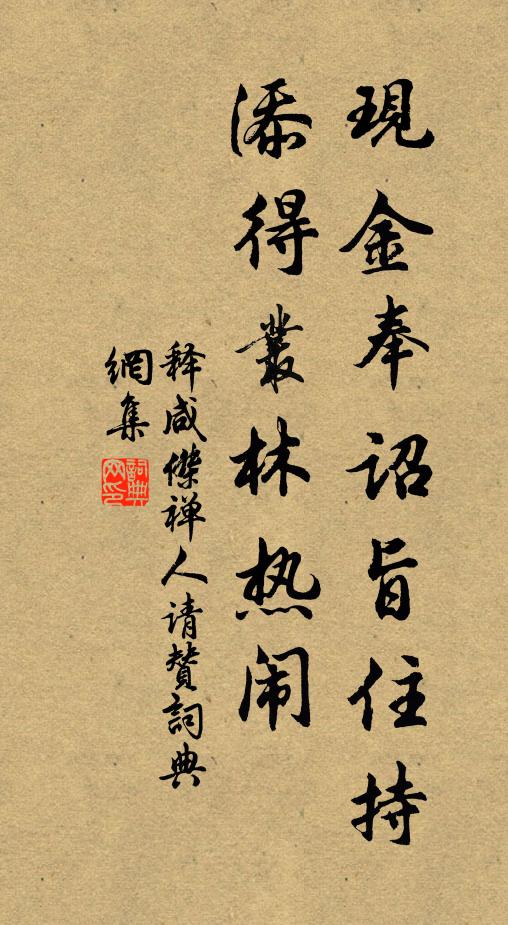 現金奉詔旨住持
添得叢林热闹
释咸傑禅人请赞詞典
網集
詞典网印